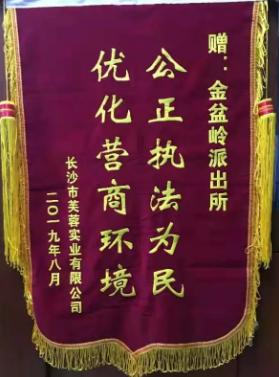 赠：金盆岭派出所
公正执法为民
优化营商环境
长沙市芙蓉实业有限公司
二〇一九年八月